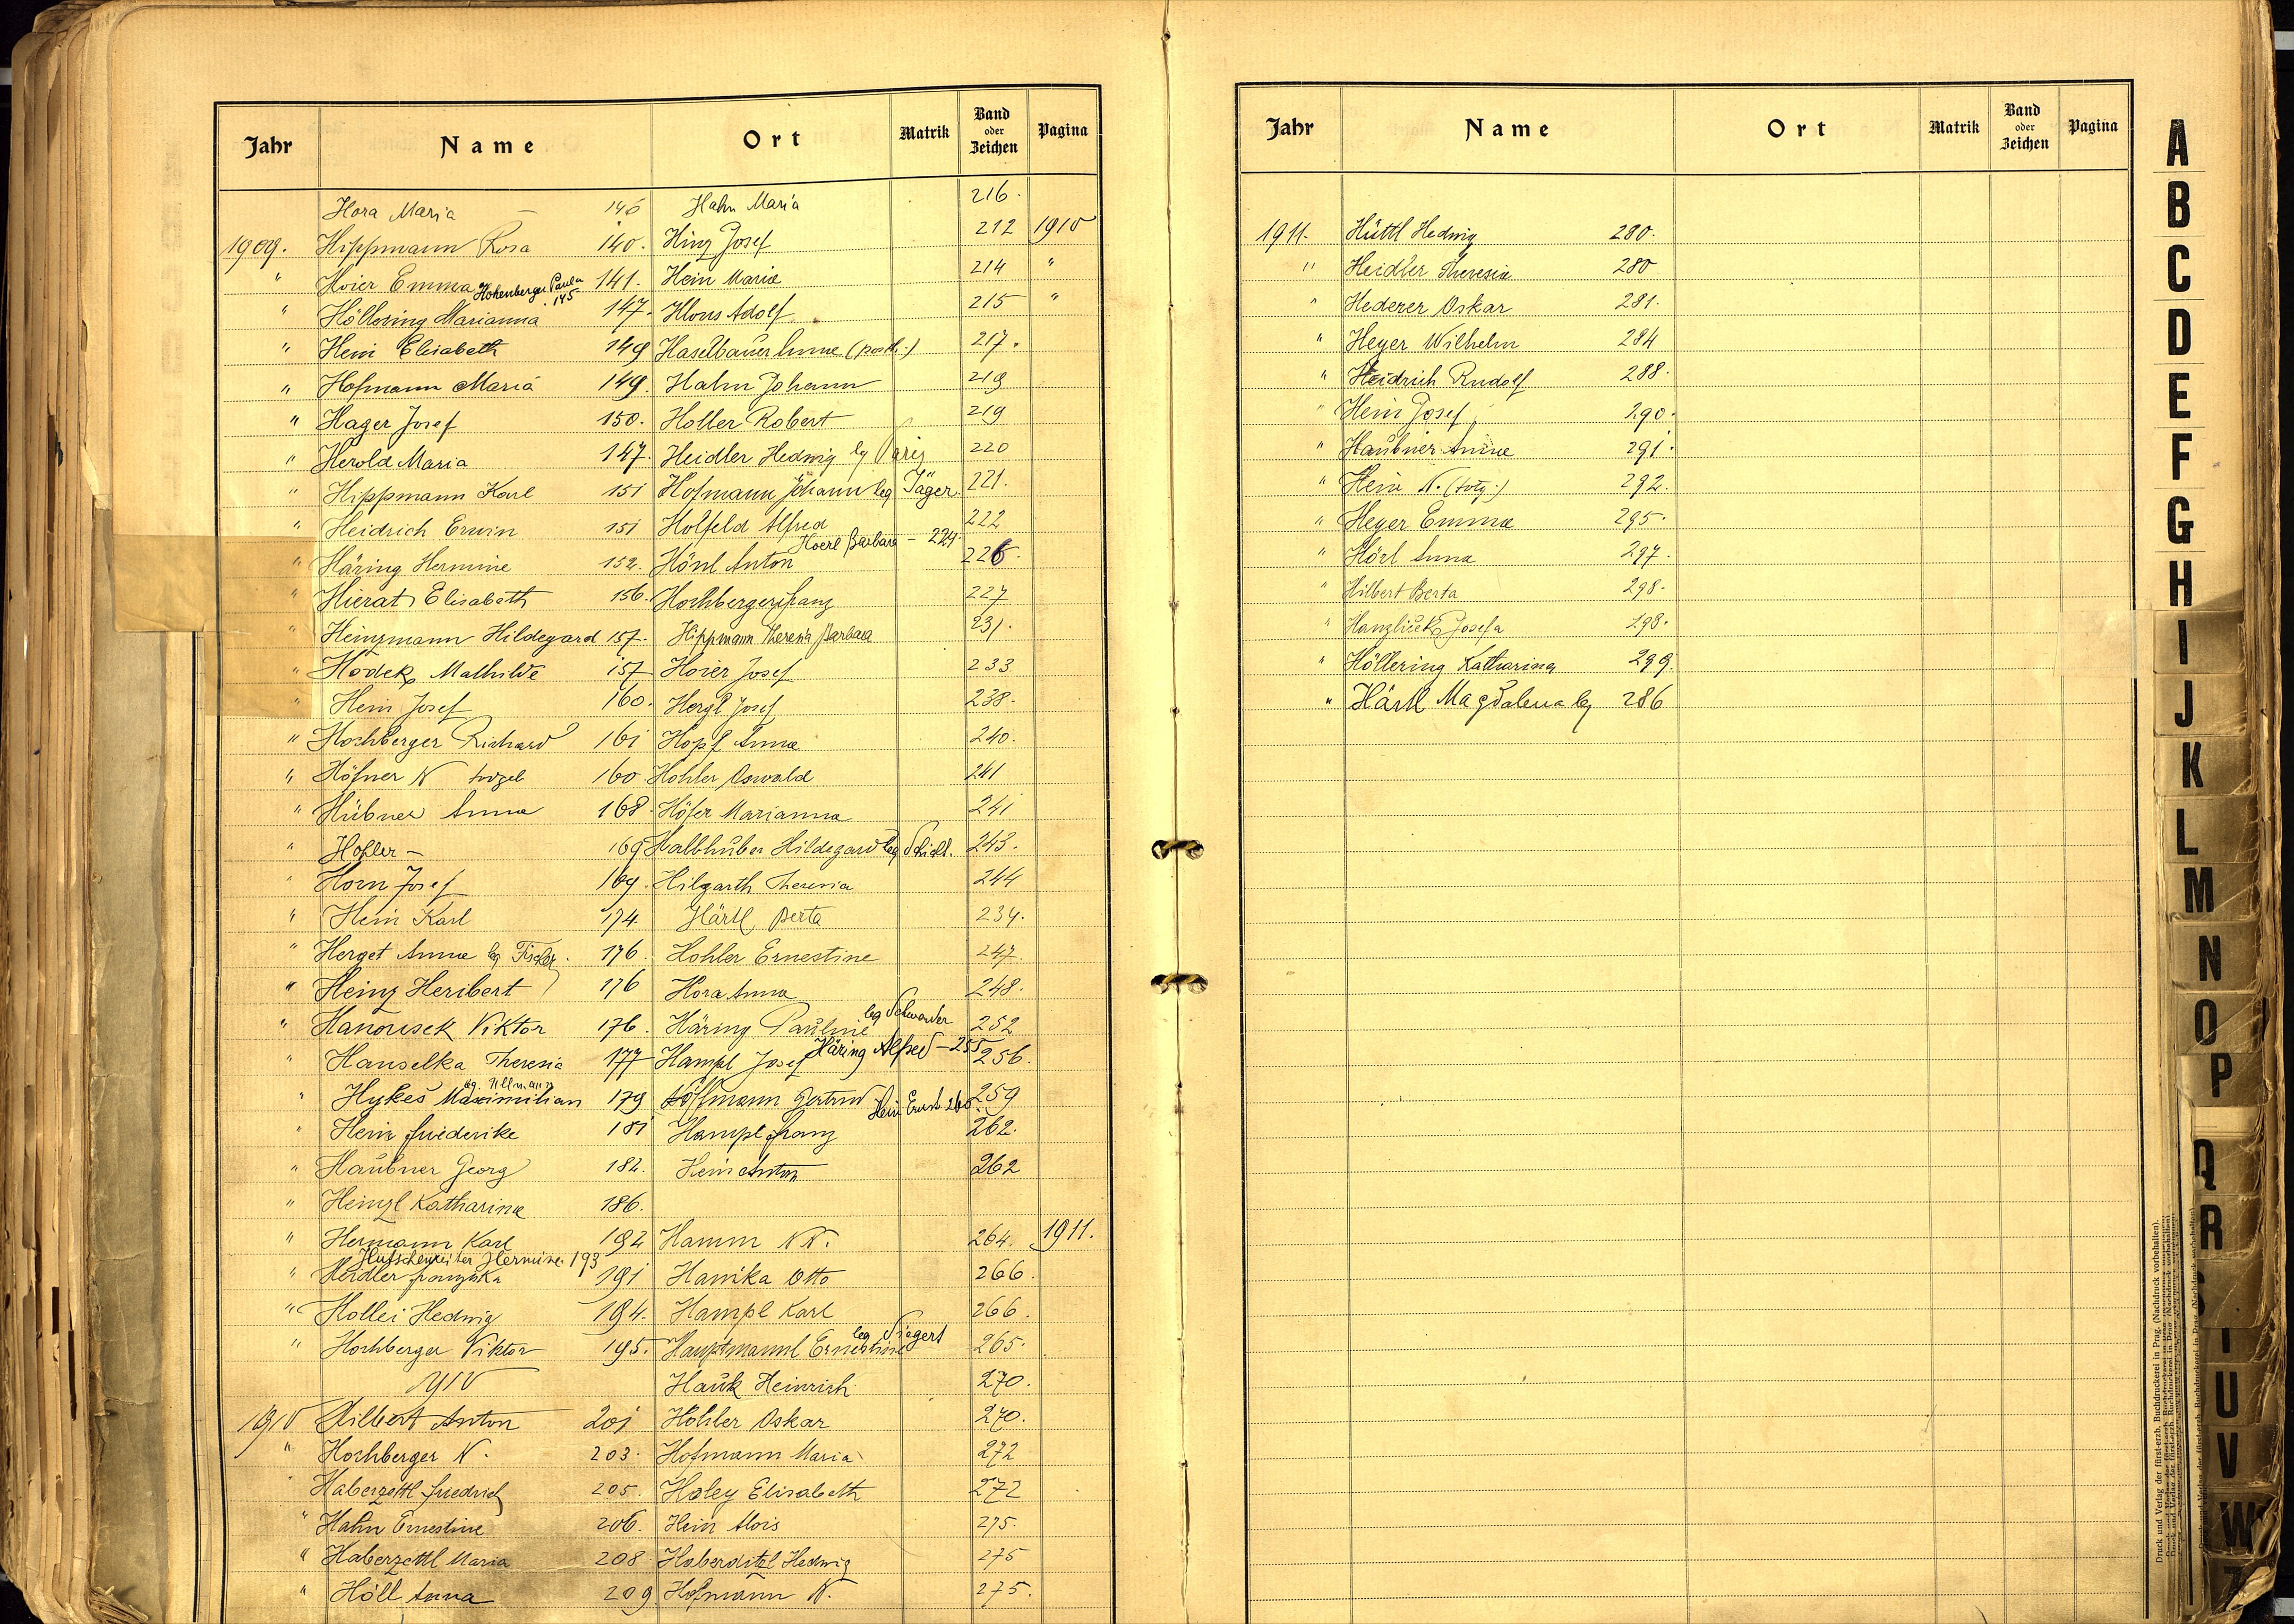 Jahr Name Ort Matrik Band oder Zeichen Pagina
Hora Maria – 146 Hahn Maria 216.
1909. Hippmann Rosa 140. Hinz Josef 212 1910
" Hoier Emma 141. Hein Maria 214 "
Hohenberger Paula 145
" Höllering Marianna 147. Hlous Adolf 215 "
" Hein Elisabeth 149 Haselbauer Anna (posth.) 217.
" Hofmann Maria 149. Hahn Johann 219
" Hager Josef 150. Holler Robert 219
" Herold Maria 147. Heidler Hedwig leg Pariz 220
" Hippmann Karl 151 Hofmann Johann leg Jäger. 221.
" Heidrich Erwin 151 Holfeld Alfred 222
Hoerl Barbara – 224.
" Häring Hermine 152. Hönl Anton 226.
" Hierat Elisabeth 156. Hochberger Franz 227
" Heinzmann Hildegard 157. Hippmann Theresia Barbara 231.
" Hodek Mathilde 157 Hoier Josef 233
" Hein Josef 160. Hergl Josef 238.
" Hochberger Richard 161 Hopf Anna 240.
" Höfner N totgeb 160. Hohler Oswald 241
" Hübner Anna 168. Höfer Marianna 241
" Hofler – 169 Halbhuber Hildegard leg Schidl. 243.
" Horn Josef 169. Hilgarth Theresia 244
" Hein Karl 174 Härtl Berta 234.
" Herget Anna leg Fischer. 176. Hohler Ernestine 247.
" Heinz Heribert 176 Hora Anna 248.
" Hanousek Viktor 176. Häring Pauline leg Schwarder 252
Häring Alfred – 255
" Hanselka Theresia 177 Hampl Josef 256.
" Hykeš Maximilian leg. Ullmann 179 Hoffmann Gertrud 259
Hein Ernst 260
" Hein Friederike 181 Hampl Franz 262.
" Haubner Georg 182. Hein Anton 262
" Heinzl Katharina 186.
" Hermann Karl 192 Hamm NN. 264. 1911.
Hutschenreiter Hermine 193
" Heidler Franziska 191 Hanika Otto 266.
" Hollei Hedwig 194. Hampl Karl 266.
" Hochberger Viktor 195. Hauptmannl Ernestine leg Siegert 265.
1910 Hauk Heinrich 270.
1910 Hilbert Anton 201 Hohler Oskar 270.
" Hochberger N. 203. Hofmann Maria 272
" Haberzettl Friedrich 205. Holey Elisabeth 272
" Hahn Ernestine 206. Hein Alois 275.
" Haberzettl Maria 208 Haberditzl Hedwig 275
" Höll Anna 209 Hofmann N. 275.
Jahr Name Ort Matrik Band oder Zeichen Pagina
1911. Hüttl Hedwig 280.
" Heidler Theresia 280
" Hederer Oskar 281.
" Heyer Wilhelm 284
" Heidrich Rudolf 288.
" Hein Josef 290.
" Haubner Anna 291.
" Hein N. (totg.) 292.
" Heyer Emma 295.
" Hörl Anna 297.
" Hilbert Berta 298.
" Hanzliček Josefa 298.
" Höllering Katharina 299.
" Härtl Magdalena leg 286
A
B
C
D
E
F
G
H
I
J
K
L
M
N
O
P
Q
R
S
T
U
V
W
Z
Druck und Verlag der fürst-erzb. Buchdruckerei in Prag. (Nachdruck vorbehalten).